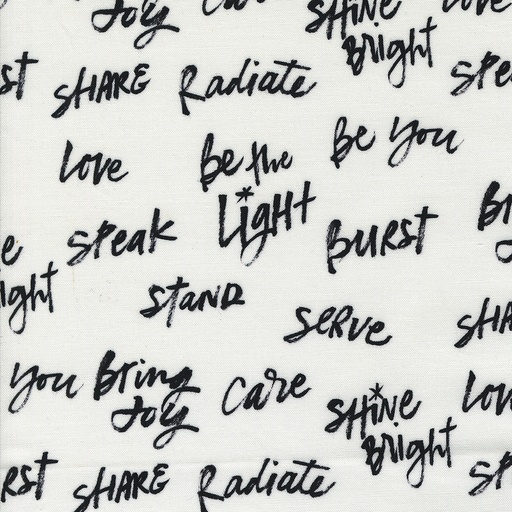 Joy Care SHINE Love
Bright
ST SHARE Radiate Spe
Love Be the Be You
LiGHt
Speak BURST Br
e
ight STAND SERVe SHA
you Bring Care SHiNe Lov
Joy Bright
RST SHARE Radiate Sp